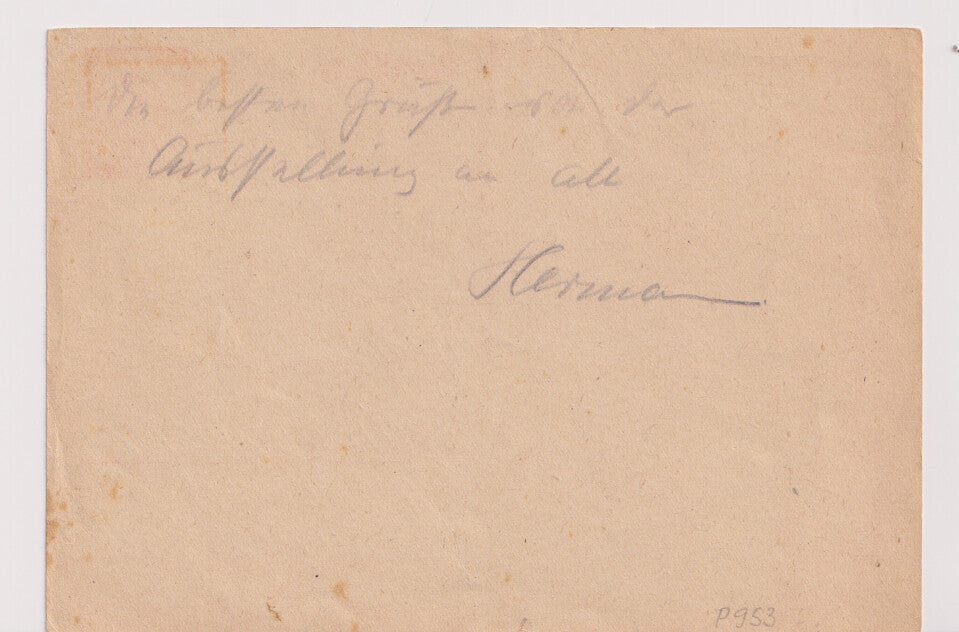 Die besten Grüße von der
Ausstellung an alle
Herman
P953